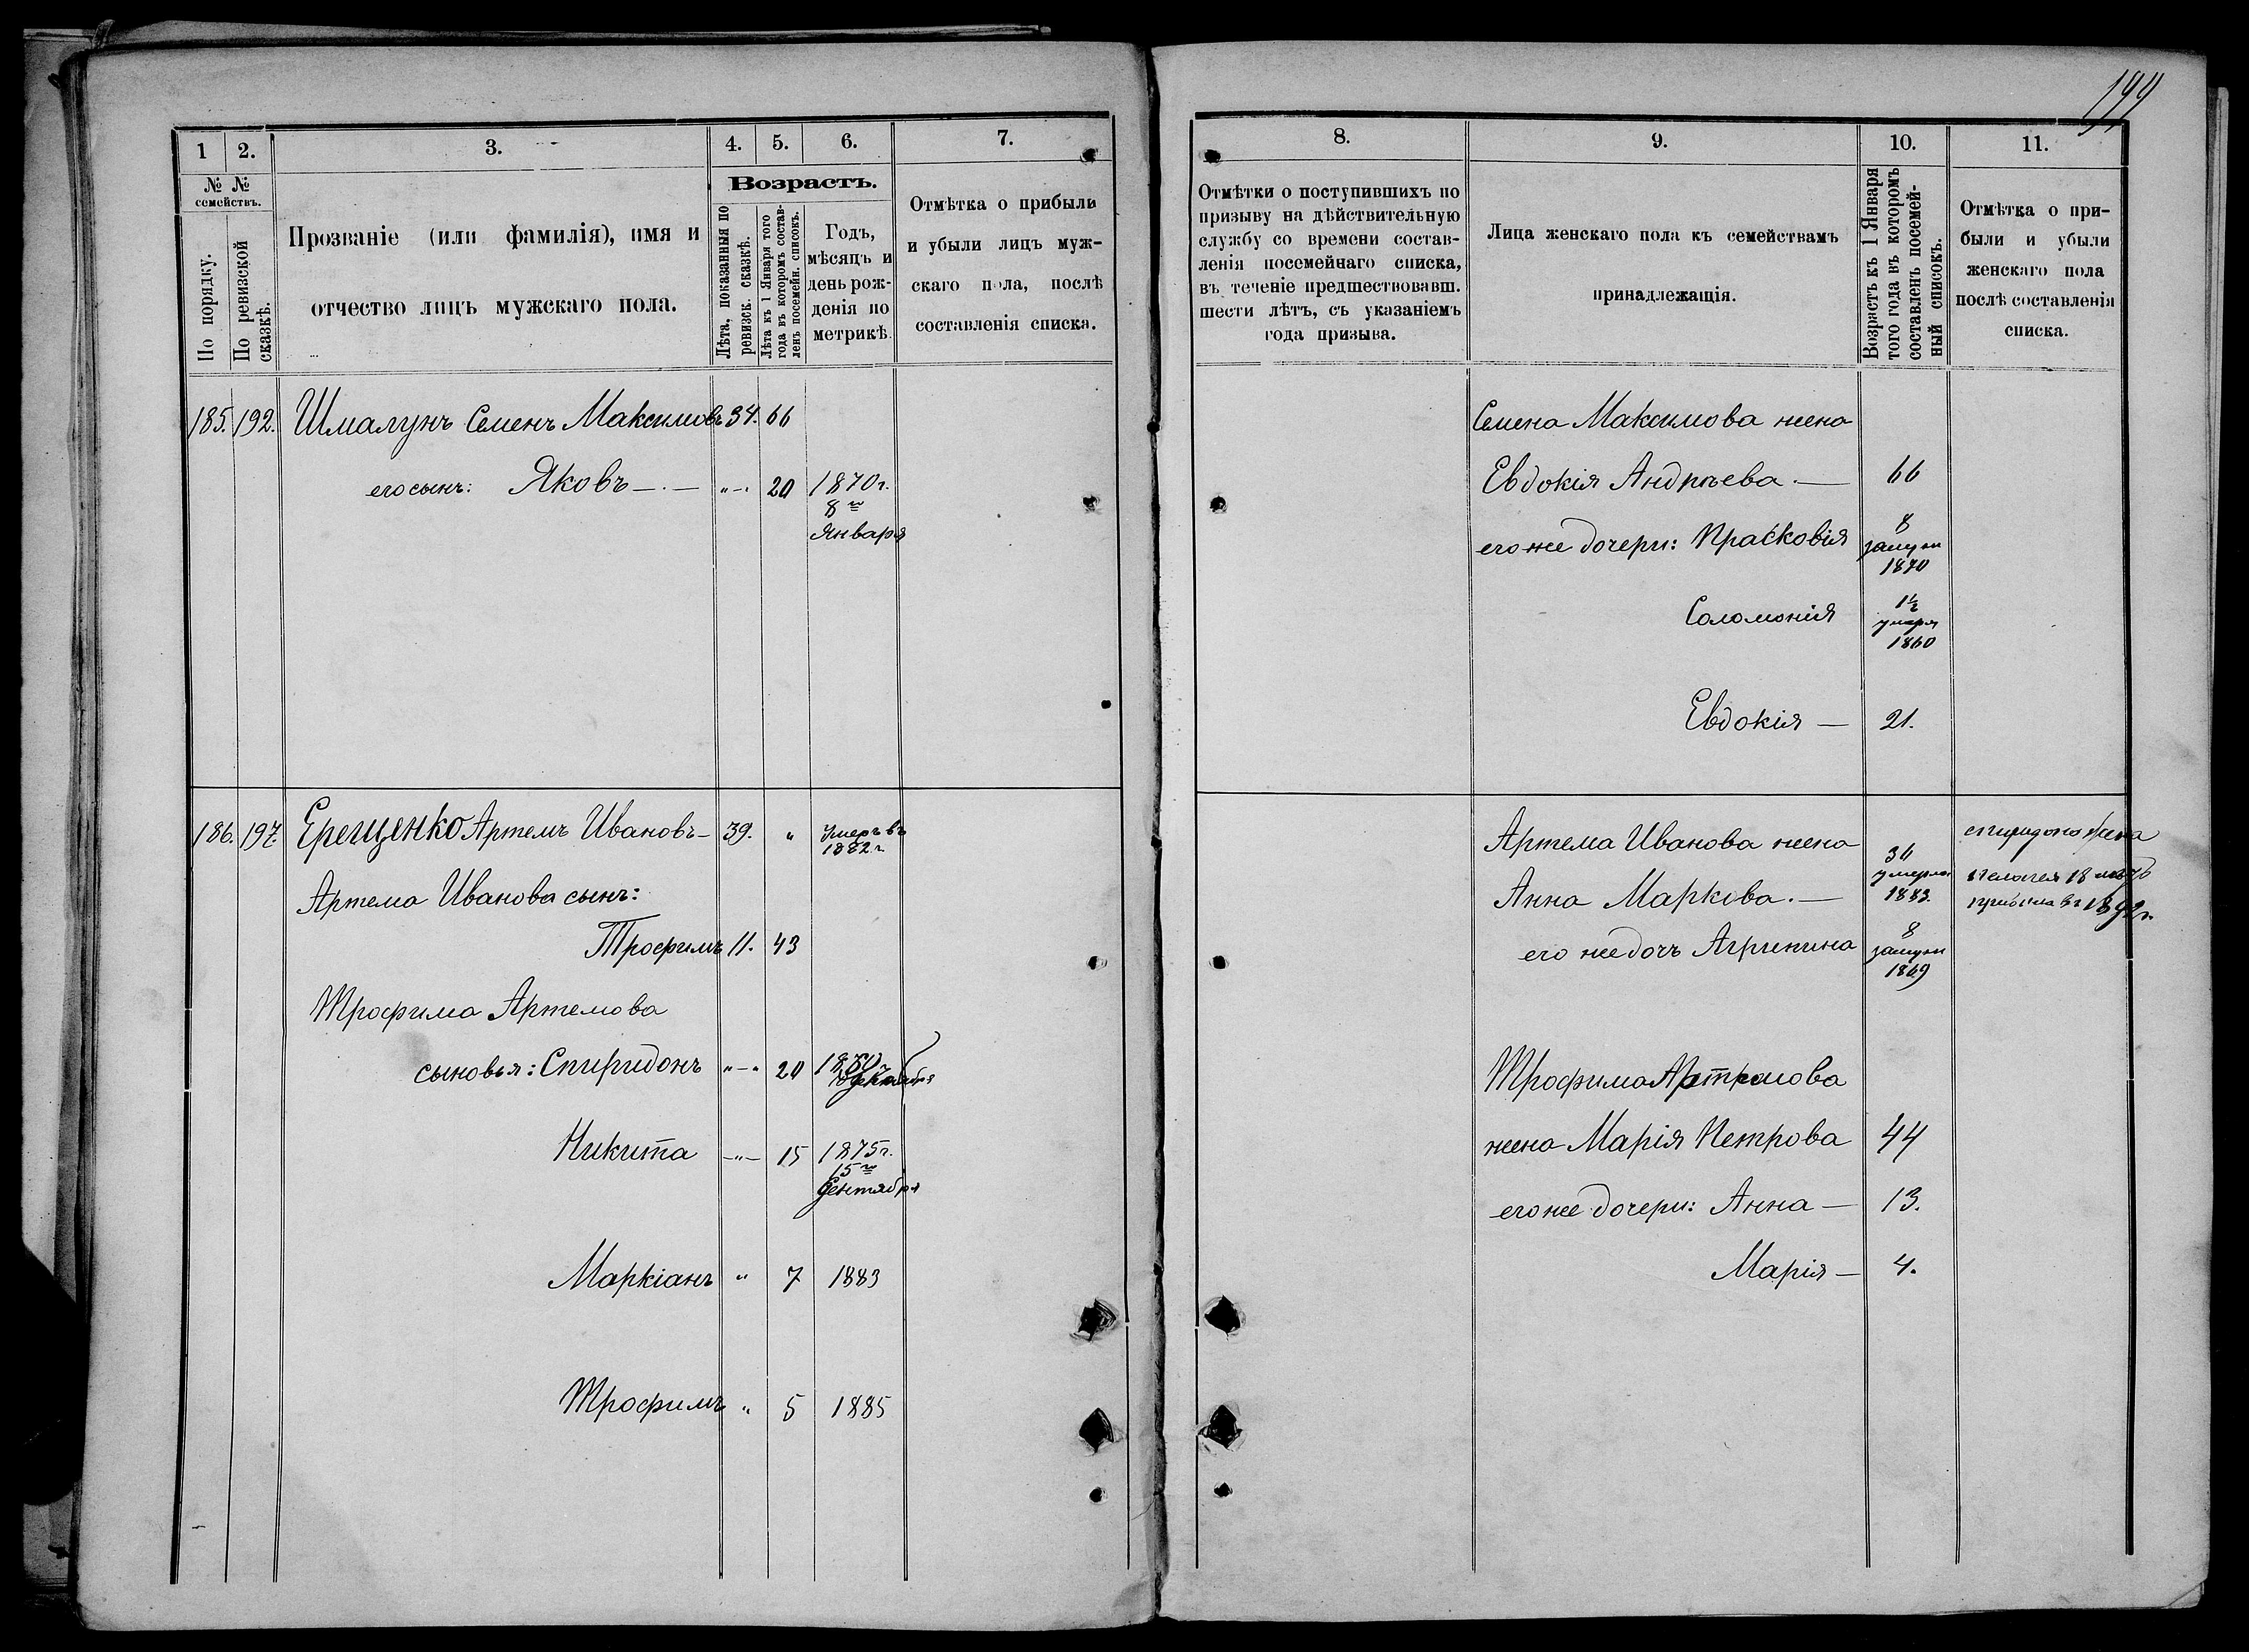 199
1 2. 3. 4. 5. 6. 7.
№ № семействъ.
По порядку.
По ревизской сказкѣ.
Прозваніе (или фамилія), имя и
отчество лицъ мужскаго пола.
Возрастъ.
Лѣта, показанныя по ревизск. сказкѣ.
Лѣта къ 1 Января того года въ которомъ составленъ посемейн. списокъ.
Годъ,
мѣсяцъ и
день рож-
денія по
метрикѣ
Отмѣтка о прибыли
и убыли лицъ муж-
скаго пола, послѣ
составленія списка.
185. 192. Шмалунъ Семенъ Максимовъ 34. 66
его сынъ: Яковъ 20 1870 г.
8го
Января
186. 197. Ерещенко Артемъ Ивановъ 39. " умеръ въ
1882 г
Артема Иванова сынъ:
Трофимъ 11. 43
Трофима Артемова
сыновья: Спиридонъ "-" 20 1870 г.
Никита -"- 15 1875 г.
15го
Сентября
Маркіанъ " 7 1883
Трофимъ " 5 1885
8. 9. 10. 11.
Отмѣтки о поступившихъ по
призыву на дѣйствительную
службу со времени состав-
ленія посемейнаго списка,
въ теченіе предшествовавш.
шести лѣтъ, съ указаніемъ
года призыва.
Лица женскаго пола къ семействамъ
принадлежащія.
Возрастъ къ 1 Января
того года въ которомъ
составленъ посемей-
ный списокъ.
Отмѣтка о при-
были и убыли
женскаго пола
послѣ составленія
списка.
Семена Максимова жена
Евдокія Андреева 66
его же дочери: Прасковія 8
замуж
1870
Соломонія 1½
умерл
1860
Евдокія — 21.
Артема Иванова жена
Анна Маркова. 36
умерла
1883.
спиридона жена
пелагея 18 летъ
прибыла въ 1892 г.
его же дочъ Агрипина 8
замуж
1869
Трофима Артемова
жена Марія Петрова 44
его же дочери: Анна — 13.
Марія — 4.